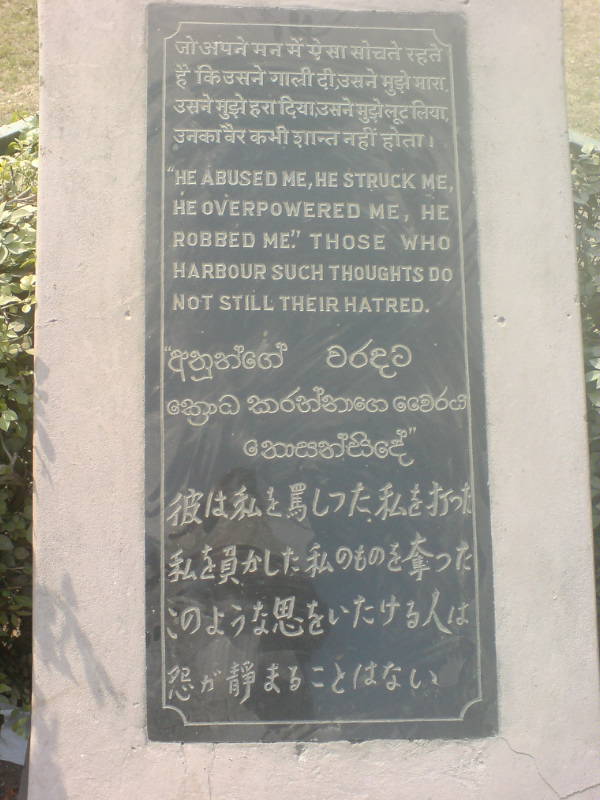 जो अपने मन में ऐसा सोचते रहते
है कि उसने गाली दी, उसने मुझे मारा,
उसने मुझे हरा दिया, उसने मुझे लूट लिया,
उनका वैर कभी शान्त नहीं होता।
"HE ABUSED ME, HE STRUCK ME,
HE OVERPOWERED ME, HE
ROBBED ME." THOSE WHO
HARBOUR SUCH THOUGHTS DO
NOT STILL THEIR HATRED.
"අනුන්ගේ වරදට
ක්‍රොධ කරන්නාගෙ වෛරය
නොසන්සිදේ"
彼は私を罵しつた、私を打つた
私を負かした 私のものを奪つた
このような思をいたける人は
怨が靜まることはない